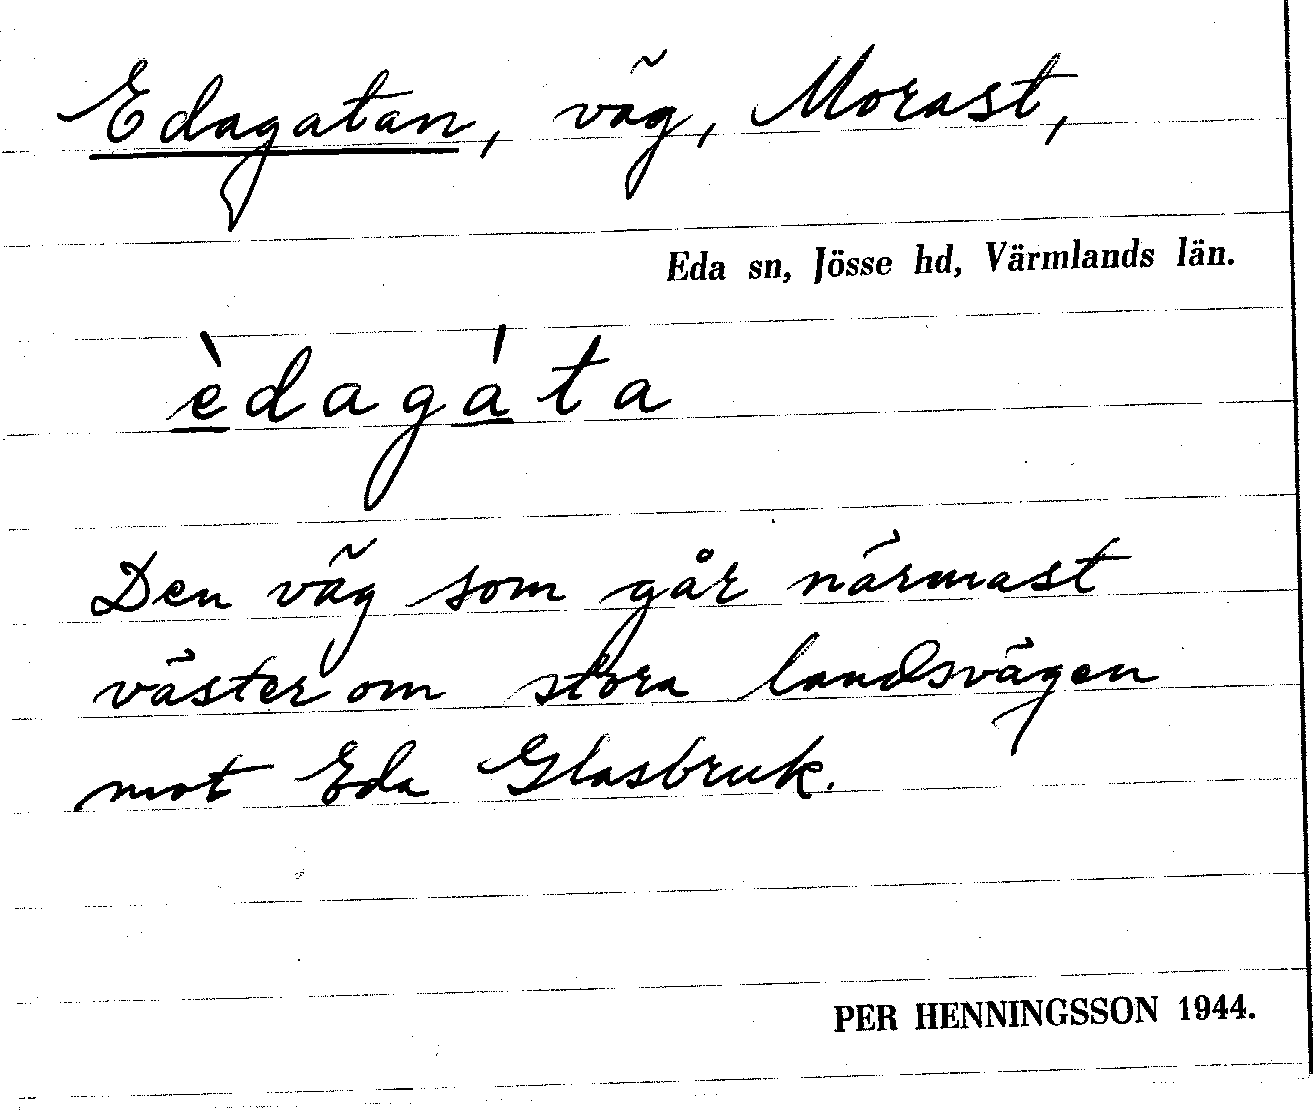 Edagatan, väg, Morast,
Eda sn, Jösse hd, Värmlands län.
èdagáta
Den väg som går närmast
väster om stora landsvägen
mot Eda Glasbruk.
PER HENNINGSSON 1944.